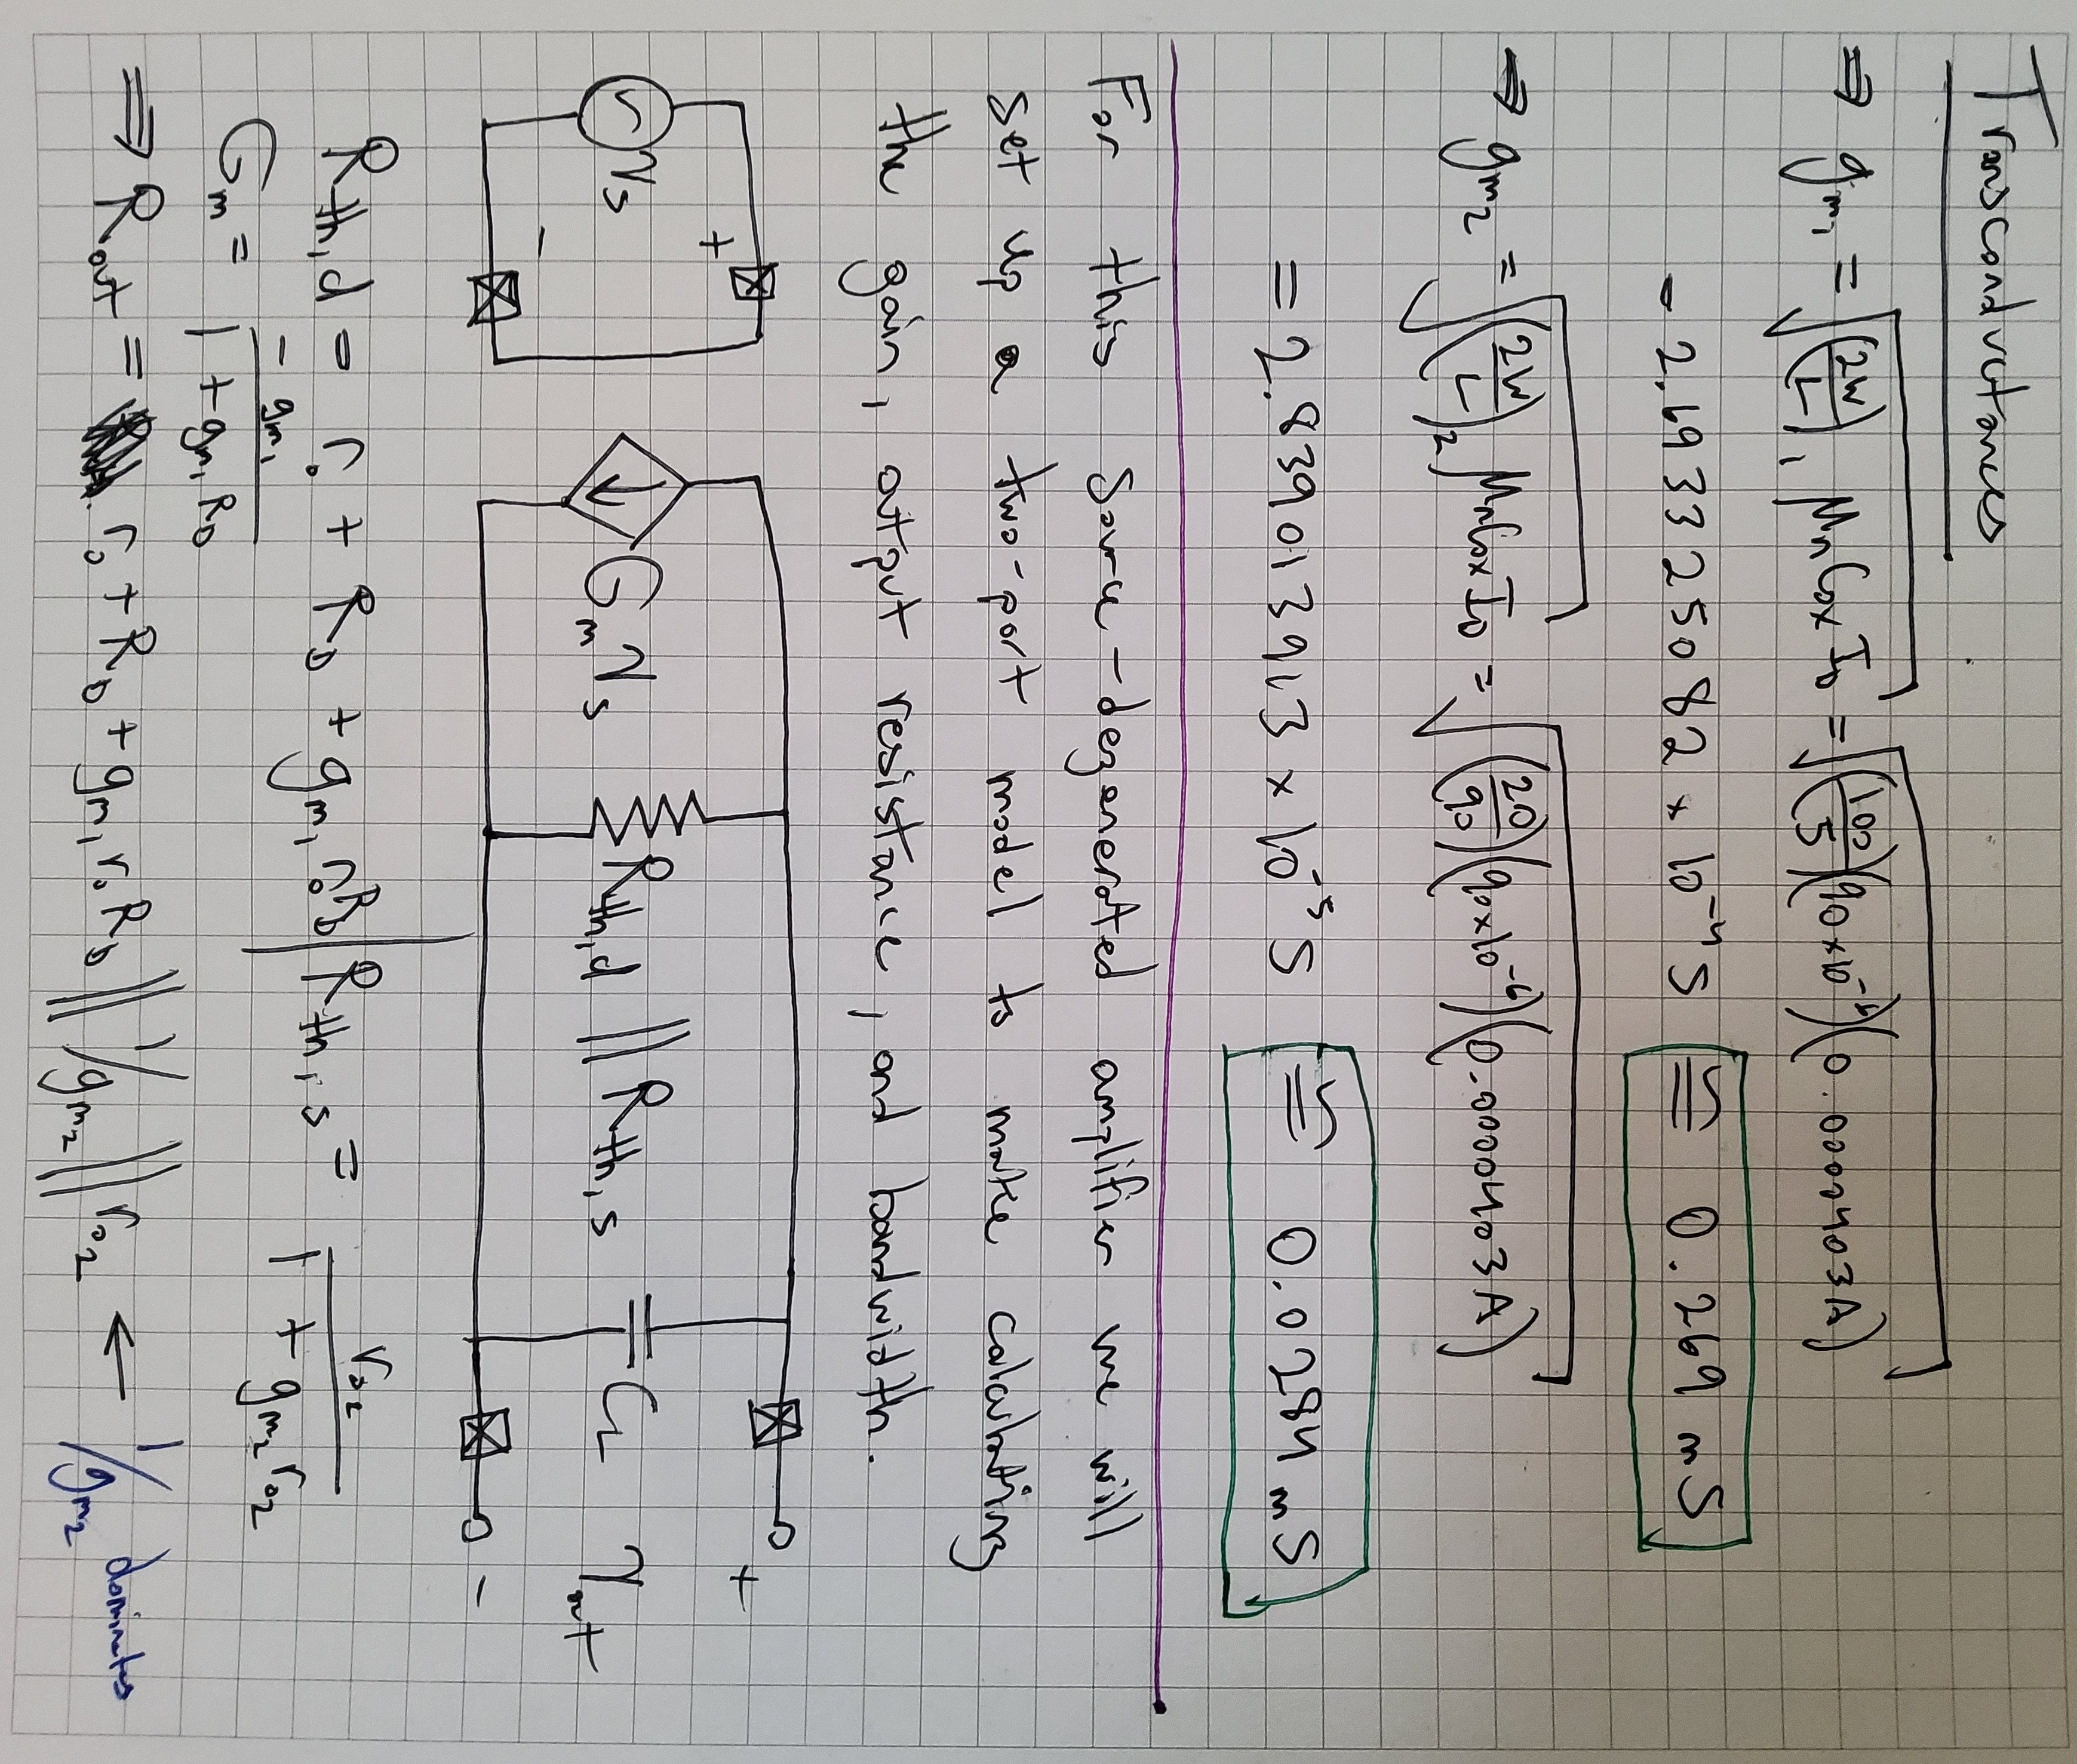 Transconductances
⇒ gm₁ = √((2W/L)₁ μnCox I_D) = √((100/5)(90×10⁻⁶)(0.0000403A))
= 2.693325082 × 10⁻⁴ S ≅ 0.269 mS
⇒ gm₂ = √((2W/L)₂ μnCox I_D) = √((20/90)(90×10⁻⁶)(0.0000403A))
= 2.839013913 × 10⁻⁵ S ≅ 0.0284 mS
For this source-degenerated amplifier we will
set up a two-port model to make calculating
the gain, output resistance, and bandwidth.
+ +
vs Gm vs R_th,d || R_th,s C_L v_out
- -
R_th,d = r_o + R_D + gm₁ r_o R_D | R_th,s = r_o₂ / (1 + gm₂ r_o₂)
Gm = -gm₁ / (1 + gm₁ R_D)
⇒ R_out = r_o + R_D + gm₁ r_o R_D || 1/gm₂ || r_o₂ ← 1/gm₂ dominates